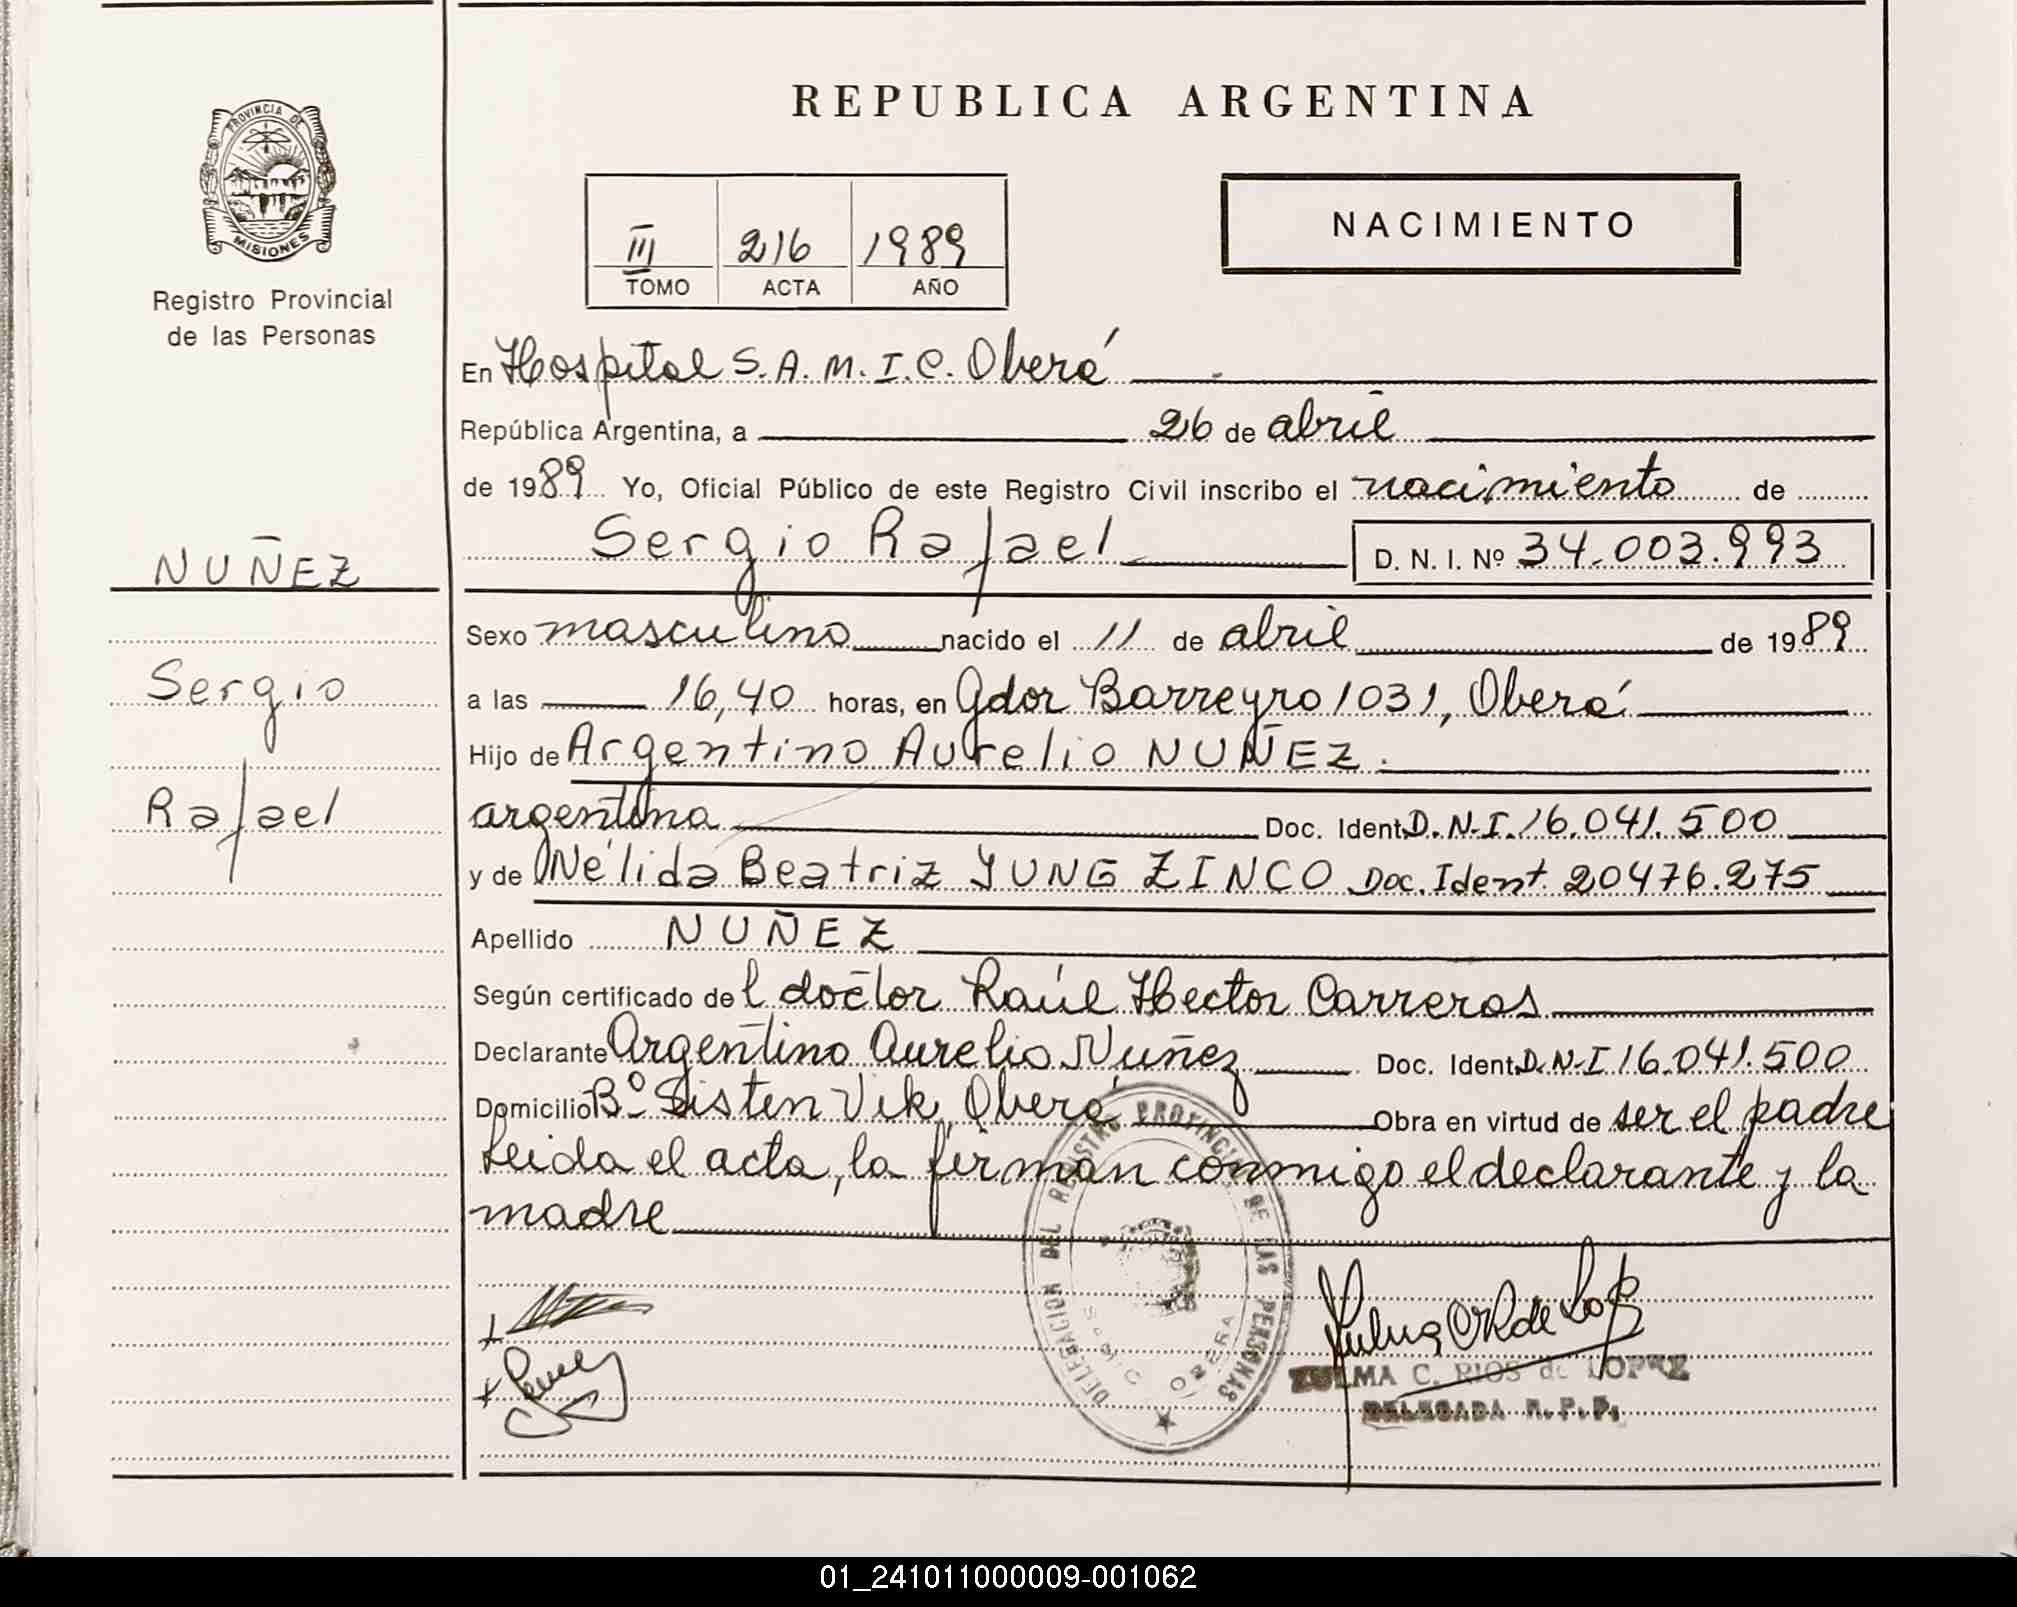 REPUBLICA ARGENTINA
PROVINCIA DE
MISIONES
Registro Provincial
de las Personas
III 216 1989
TOMO ACTA AÑO
NACIMIENTO
En Hospital S.A.M.I.C. Oberá
República Argentina, a 26 de abril
de 1989 Yo, Oficial Público de este Registro Civil inscribo el nacimiento de
Sergio Rafael D. N. I. Nº 34.003.993
NUÑEZ
Sergio
Rafael
Sexo masculino nacido el 11 de abril de 1989
a las 16,40 horas, en Gdor Barreyro 1031, Oberá
Hijo de Argentino Aurelio NUÑEZ.
argentina Doc. Ident. D.N.I. 16.041.500
y de Nélida Beatriz YUNG ZINCO Doc. Ident. 20476.275
Apellido NUÑEZ
Según certificado del doctor Raúl Hector Carreros
Declarante Argentino Aurelio Nuñez Doc. Ident. D.N.I 16.041.500
Domicilio Bº Sisten Vik, Oberá Obra en virtud de ser el padre
Leida el acta, la firman conmigo el declarante y la
madre
DELEGACION DEL REGISTRO PROVINCIAL DE LAS PERSONAS
OBERA
ZULMA C. RIOS de LOPEZ
DELEGADA R.P.P.
01_241011000009-001062